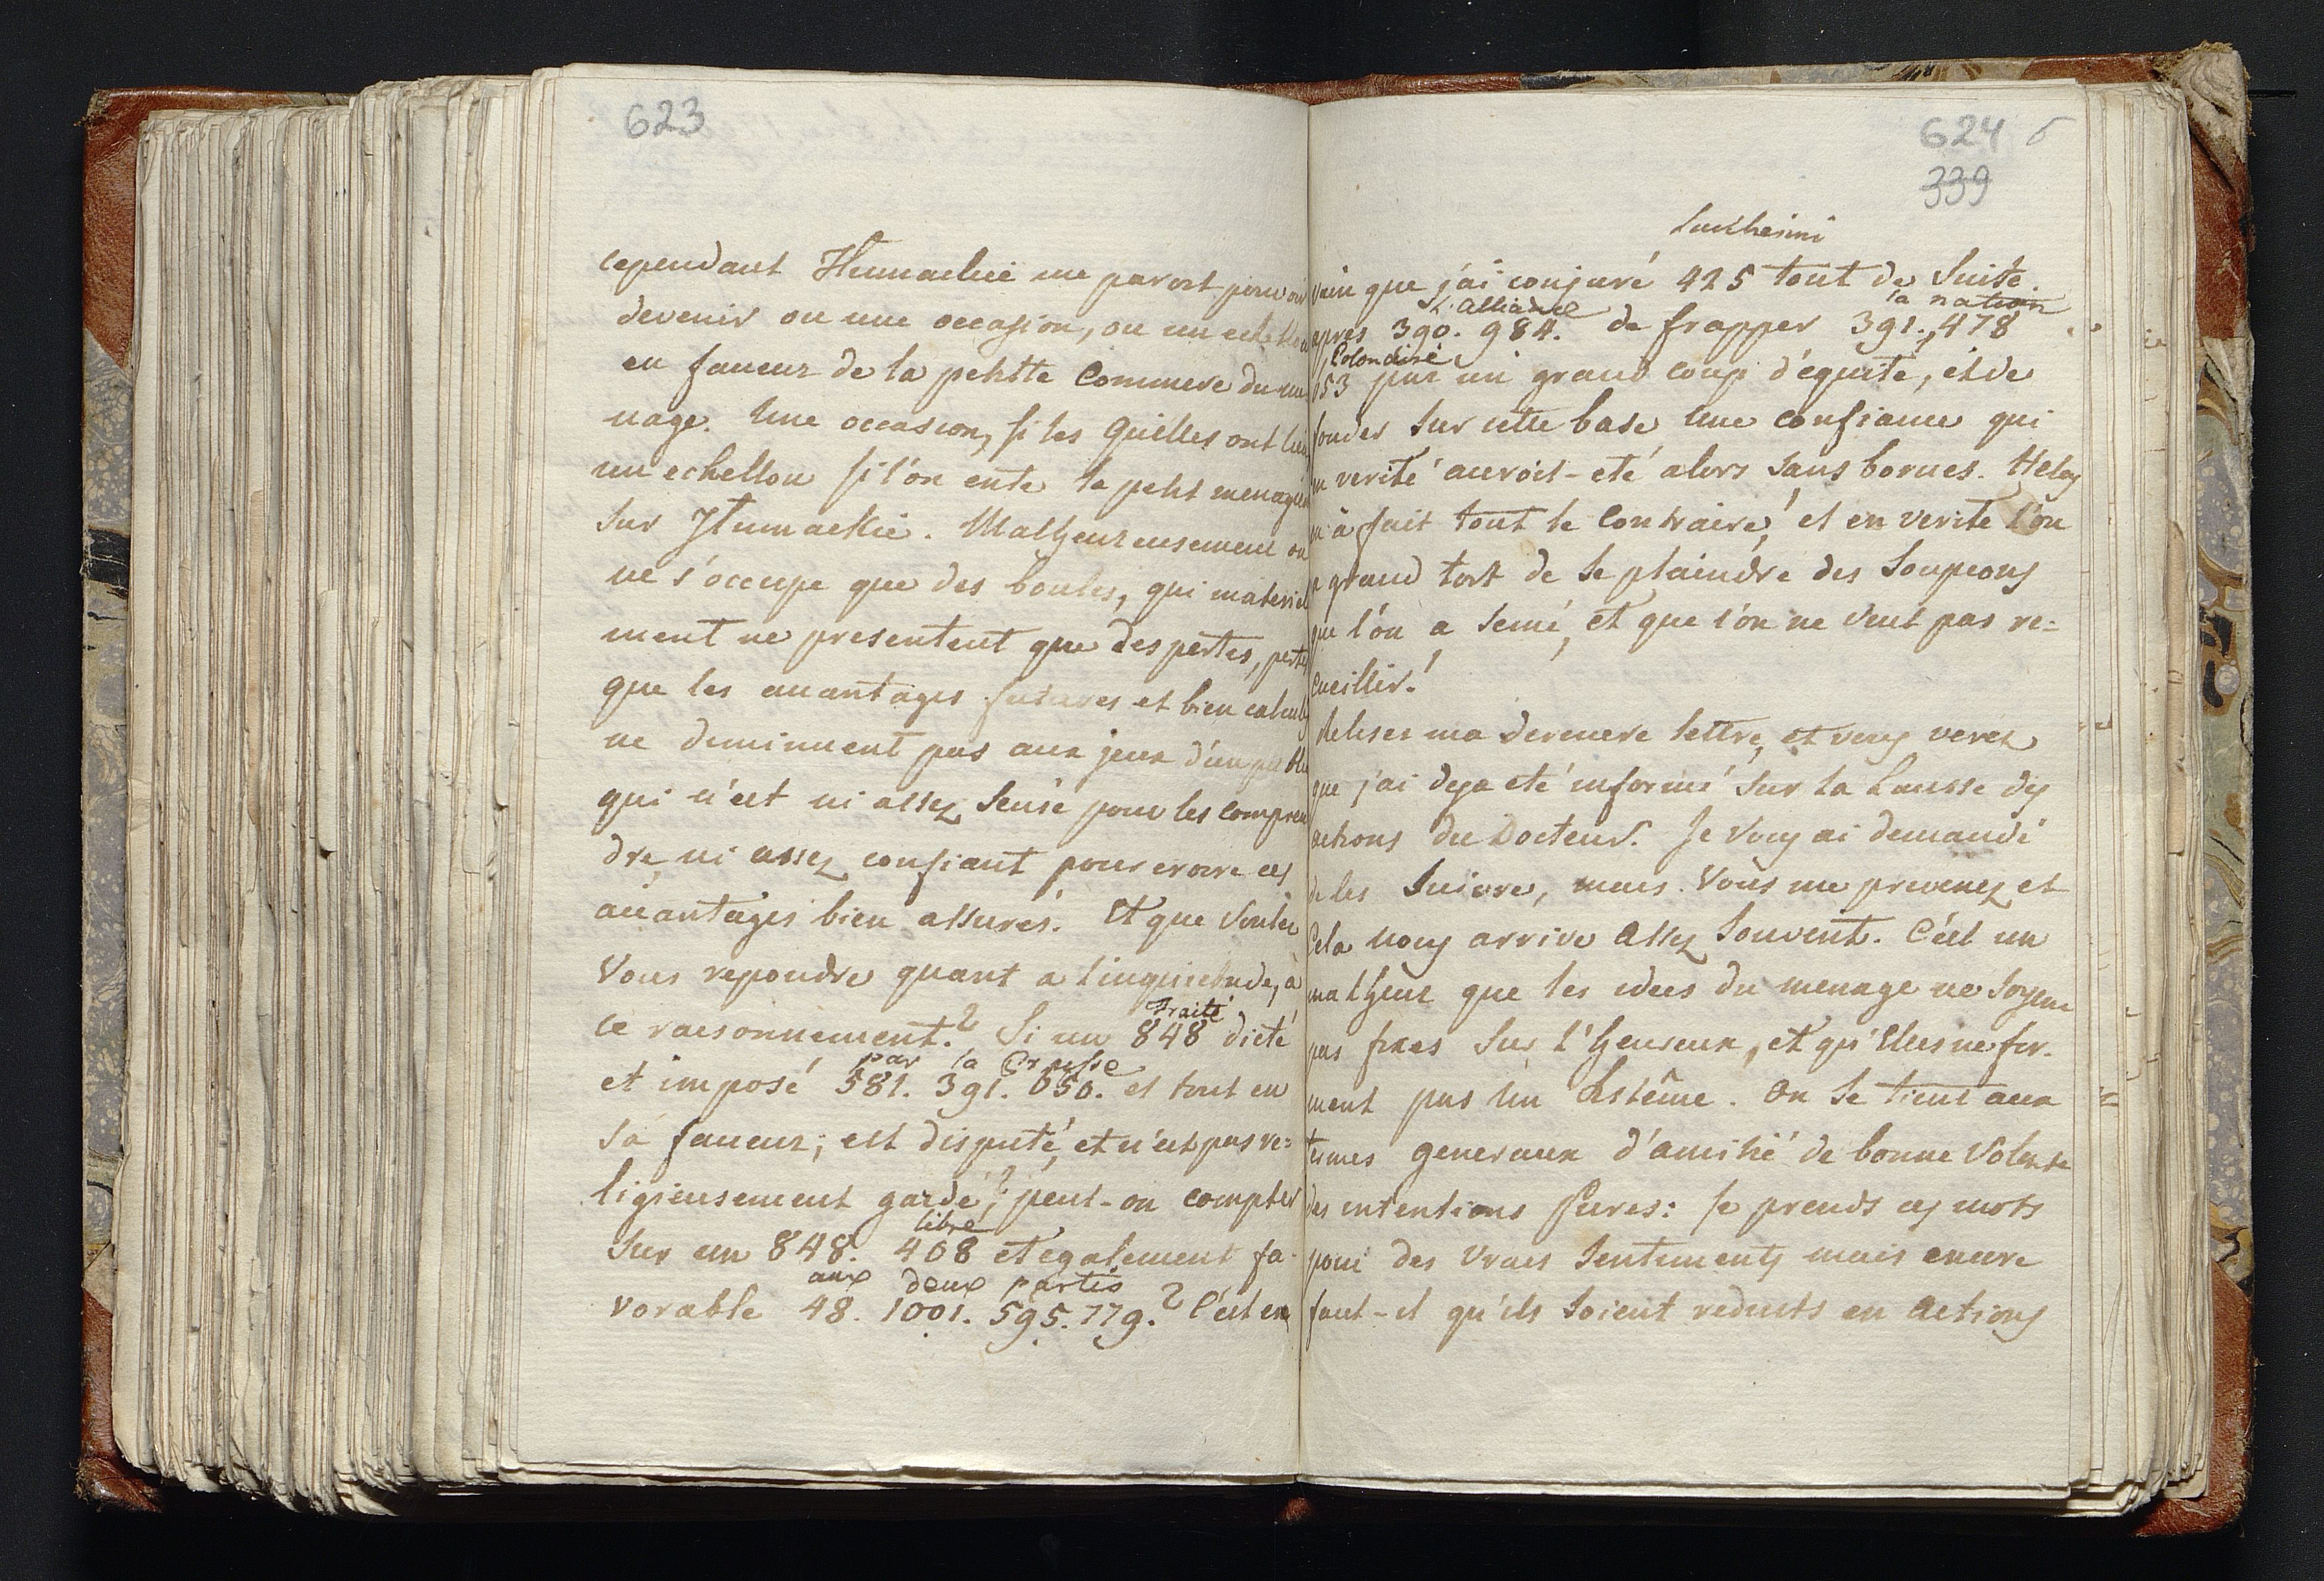 623
cependant Humackie me paroit pouvoir
devenir ou une occasion, ou un echellon
en faveur de la petitte Commere du me
nage. Une occasion, si les Quilles ont lieu
un echellon si l'on ente le petit menage
sur Humackie. Malheureusement on
ne s'occupe que des boules, qui materiel
ment ne presentent que des pertes, pertes
que les auantages futures et bien calculés
ne diminuent pas aux jeux d'un public
qui n'est ni assez sensé pour les compren
dre, ni assez confiant pour croire ces
auantages bien assurés. Et que voulez
Vous repondre quant a l'inquietude, à
Traité
ce raisonnement? Si un 848 dicté
par la Prusse
et imposé 581. 391. 650. et tout en
sa faueur, est disputé, et n'est pas re=
ligieusement gardé, peut-on compter
libre
sur un 848. 408 et egalement fa-
aux deux partis
vorable 48. 1001. 595. 779.? C'est en
624
339
Lucchesini
vain que j'ai conjuré 425 tout de Suite
L'alliance la nation
apres 390. 984. de frapper 391., 478
Polonaise
653 par un grand coup d'équité, et de
fonder sur cette base une confiance qui
en verité auroit-eté alors sans bornes. Helas
on à fait tout le contraire! et en verite l'on
a grand tort de se plaindre des soupçons
que l'on a semé, et que l'on ne veut pas re=
cueillir!
Relises ma derniere lettre, et vous verez
que j'ai deja eté informé sur la hausse des
actions du Docteur. Je vous ai demandé
de les suivre, mais Vous me prevenez et
Cela nous arrive assez souvent. C'est un
malheur que les idees du menage ne soyent
pas fixes sur l'heureux, et qu'Elles ne for-
ment pas un sistême. On se tient aux
termes generaux d'amitié de bonne Volonte
des intentions pures: je prends ces mots
pour des vrais sentiments mais encore
faut-il qu'ils soient reduits en actions